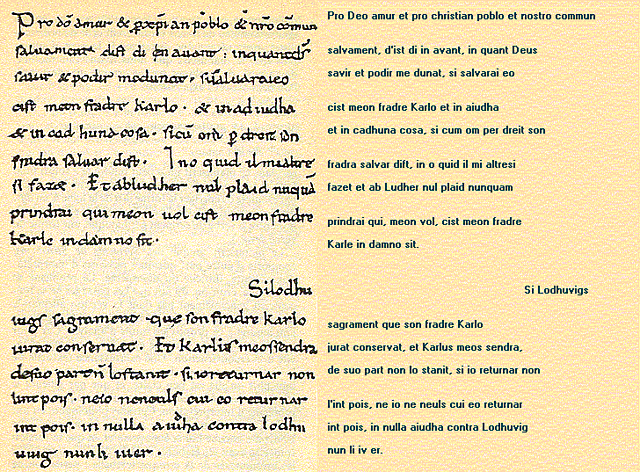 Pro dō amur & p xp̄ian poblo & nr̄o cōmun
saluament. dist di en auant. inquantd̄s
sauir & podir medunat. sisaluaraieo
cist meon fradre karlo. & in adiudha
& in cad huna cosa. sicū om p dreit son
fradra saluar dist. Ino quid il mi altre
si faz&. Et abludher nul plaid nūquā
prindrai qui meon uol cist meon fradre
karle in damno sit.
Silodhu
uigs sagrament. que son fradre karlo
iurat conseruat. Et karlus meossendra
desuo partn̄ lostanit. si ioreturnar non
lint pois. neio neneuls cui eo returnar
int pois. in nulla aiudha contra lodhu
uuig nunli iuer.
Pro Deo amur et pro christian poblo et nostro commun
salvament, d'ist di in avant, in quant Deus
savir et podir me dunat, si salvarai eo
cist meon fradre Karlo et in aiudha
et in cadhuna cosa, si cum om per dreit son
fradra salvar dift, in o quid il mi altresi
fazet et ab Ludher nul plaid nunquam
prindrai qui, meon vol, cist meon fradre
Karle in damno sit.
Si Lodhuvigs
sagrament que son fradre Karlo
jurat conservat, et Karlus meos sendra,
de suo part non lo stanit, si io returnar non
l'int pois, ne io ne neuls cui eo returnar
int pois, in nulla aiudha contra Lodhuvig
nun li iv er.